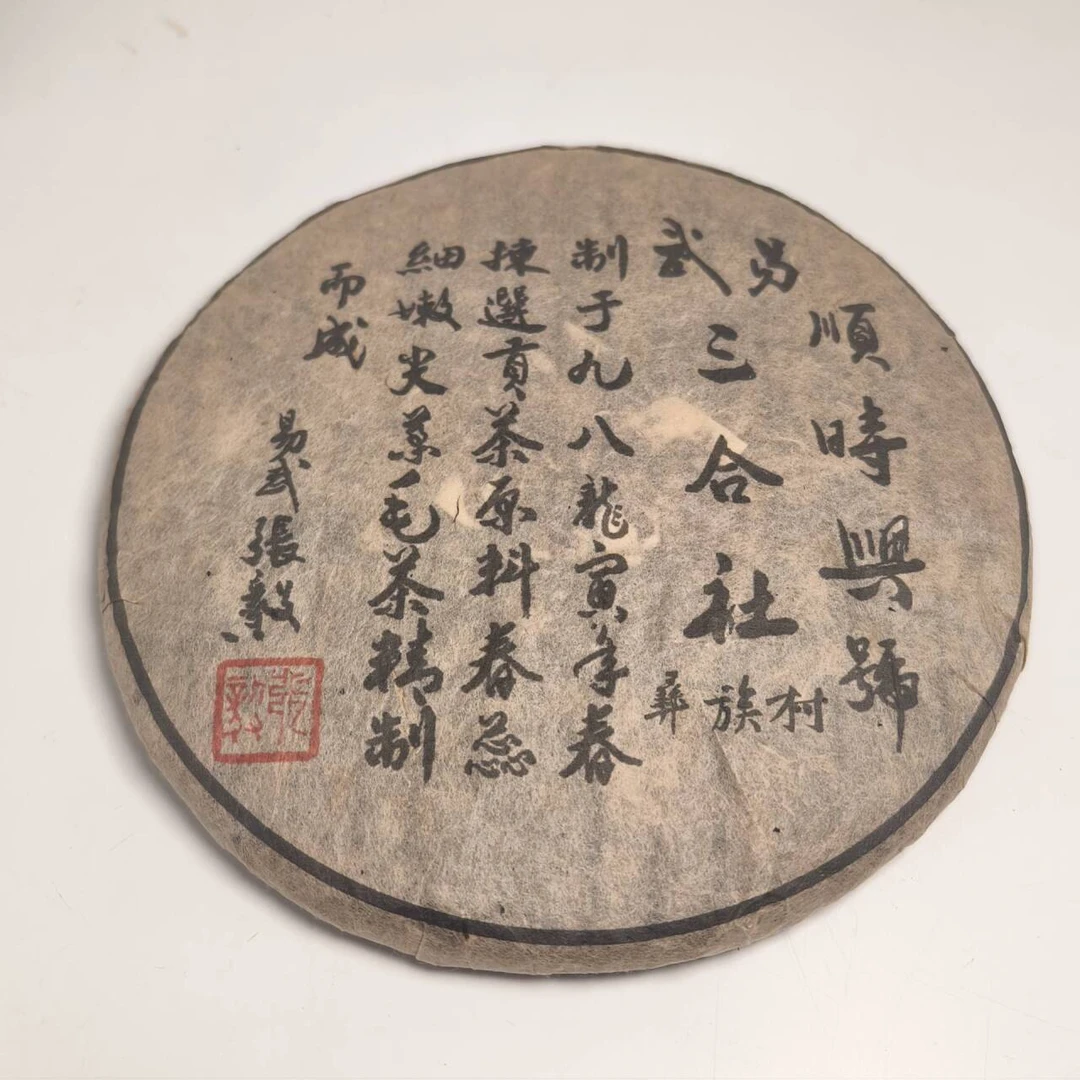 順時興號
易武
三合社
彝族村
制于九八龍寅年春
揀選貢茶原料春蕊
細嫩尖毛茶精制
而成
易武張毅